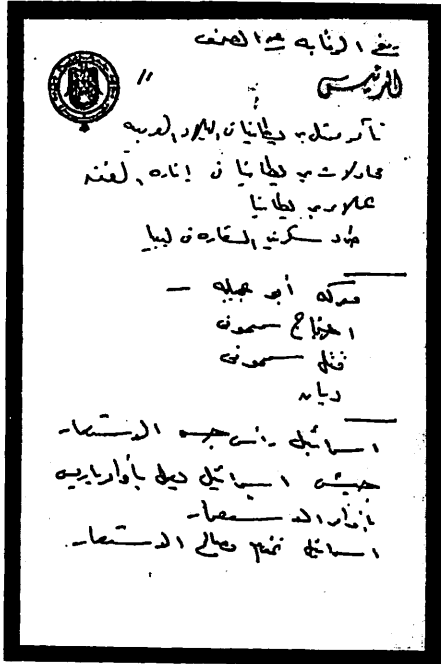 رفع الرقابه عن الصحف
الرئيس
تآمر مستمر بريطانيا فى البلاد العربيه
محاولات بريطانيا فى إثارة الفتنه
عملاء بريطانيا
طرد سكرتير السفارة فى ليبيا
معركه أبو عجيله
احتجاج سيمونى
قتل سيمونى
ديان
اسرائيل رأس جسر الاستعمار
جيش اسرائيل يعمل بأوامر باريس
بأوامر الاستعمار
اسرائيل تخدم مصالح الاستعمار